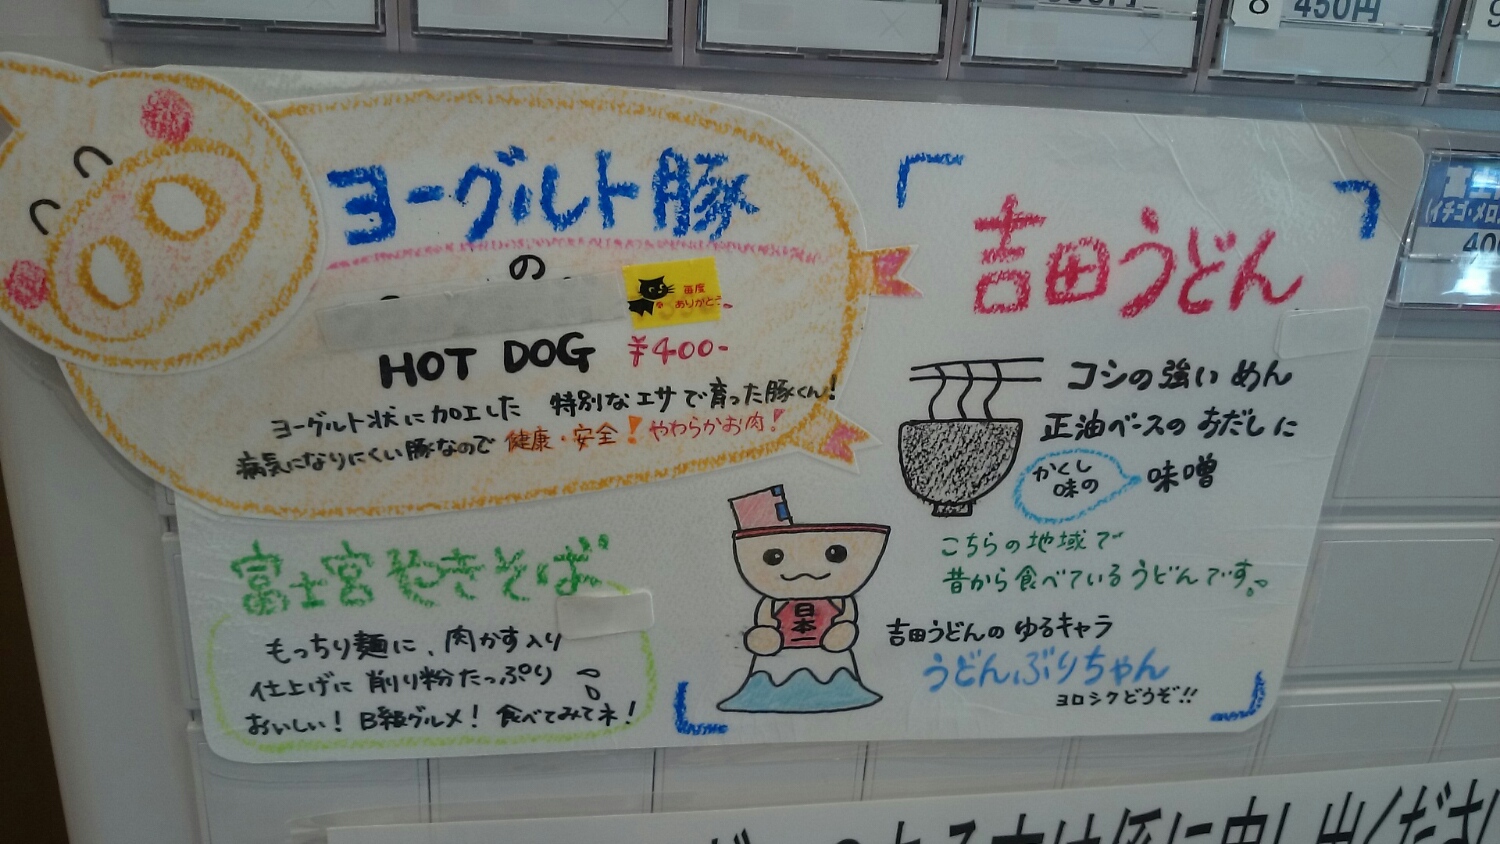 8 450円
ヨーグルト豚
の
毎度
ありがとう
HOT DOG ¥400-
ヨーグルト状に加工した 特別なエサで育った豚くん!
病気になりにくい豚なので 健康・安全!やわらかお肉!
富士宮やきそば
もっちり麺に、肉かす入り
仕上げに削り粉たっぷり
おいしい!B級グルメ!食べてみてネ!
「吉田うどん」
コシの強いめん
正油ベースのおだしに
かくし
味の
味噌
こちらの地域で
昔から食べているうどんです。
日本一
吉田うどんのゆるキャラ
うどんぶりちゃん
ヨロシクどうぞ!!
(イチゴ・メロ
400
係に申し出ください